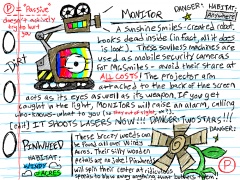 (P) = "Passive"
doesn't actively
try to hurt
you
MONITOR
DANGER:
HABITAT:
Anywhere
A Sunshine Smiles-created robot,
looks dead inside (in fact, all it does
is look). These soulless machines are
used as mobile security cameras
for Mr. Smiles - avoid their stare at
ALL COSTS! The projector arm
attached to the back of the screen
acts as its eyes as well as its weapon. If you get
caught in the light, MONITORS will raise an alarm, calling
who-knows-what to you
IT SHOOTS LASERS NOW! DANGER: TWO STARS!!!
DIRT
PINWHEED
HABITAT:
DANGER:
These breezy weeds can
be found all over Winds
. Their silly wooden
petals are no joke! Pinwheeds
will spin their center at ridiculous
speeds to blow away anything that